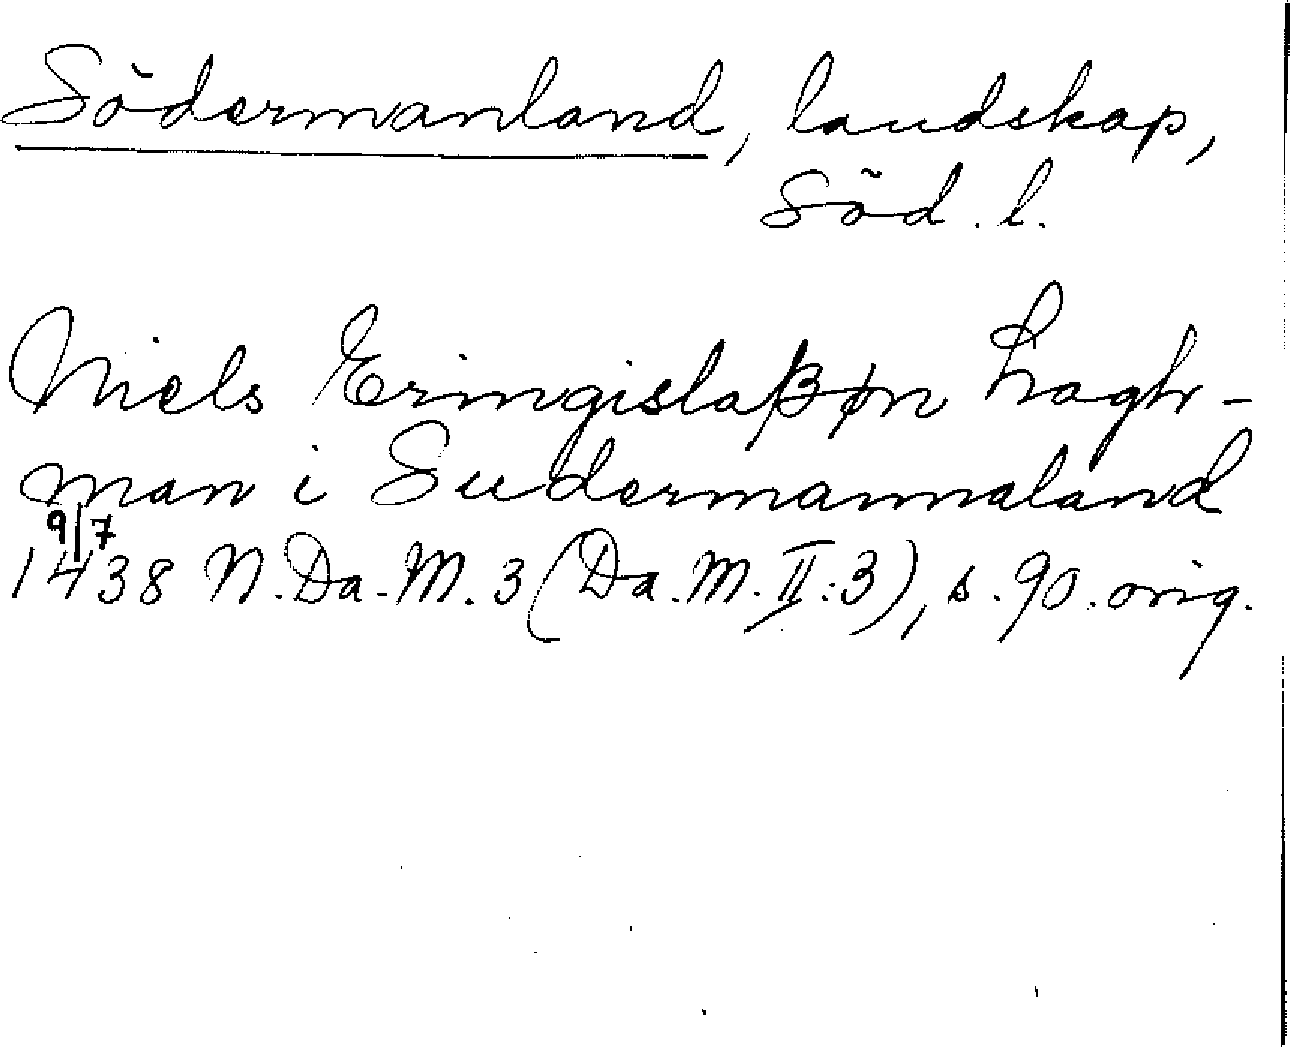 Södermanland, landskap,
Söd. l.
Niels Eringislaßøn Lagh-
man i Sudermannaland
9/7
1438 N. Da. M. 3 (Da. M. II:3), s. 90. orig.